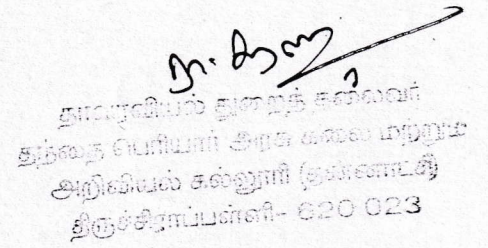 தாவரவியல் துறைத் தலைவர்
தந்தை பெரியார் அரசு கலை மற்றும்
அறிவியல் கல்லூரி (தன்னாட்சி)
திருச்சிராப்பள்ளி- 620 023